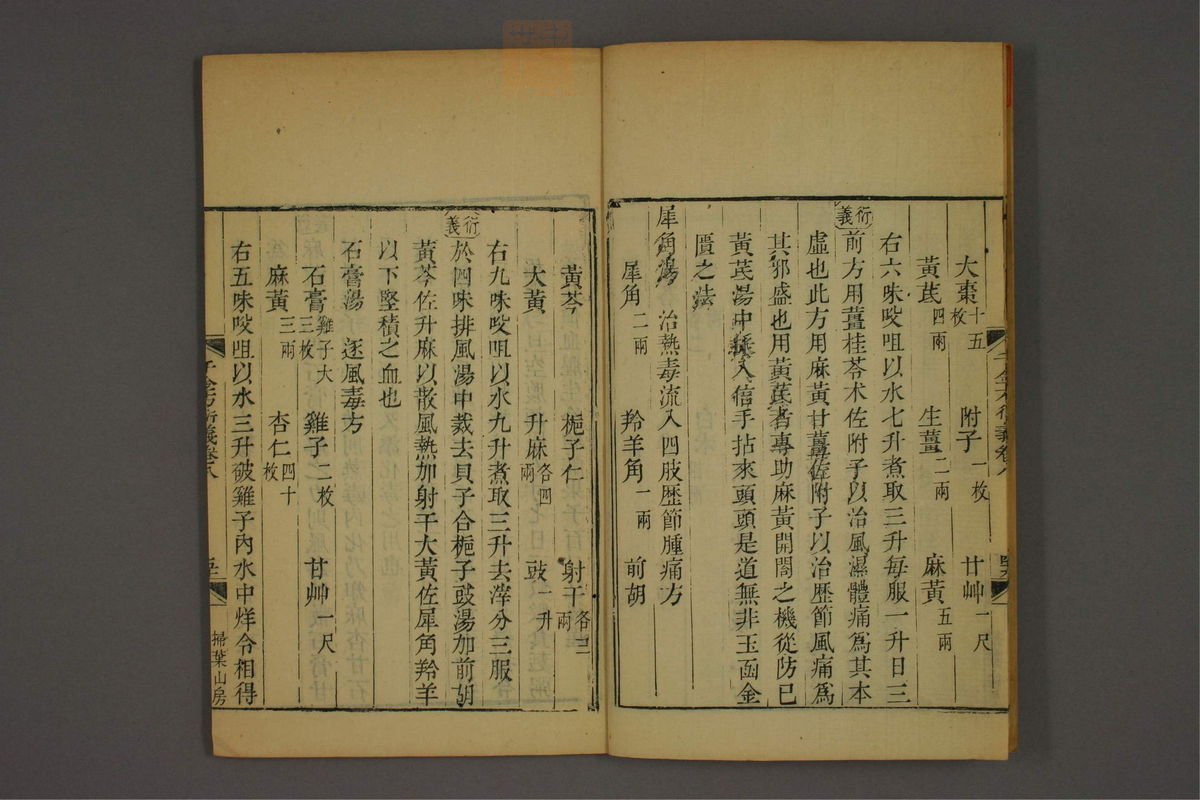 大棗十五枚　附子一枚　甘艸一尺
黃芪四兩　生薑二兩　麻黃五兩
右六味㕮咀以水七升煮取三升每服一升日三
衍義
前方用薑桂苓术佐附子以治風濕體痛爲其本
虛也此方用麻黃甘薑佐附子以治歷節風痛爲
其邪盛也用黃芪者專助麻黃開闔之機從防已
黃芪湯中入信手拈來頭頭是道無非玉函金
匱之法
犀角湯　治熱毒流入四肢歷節腫痛方
犀角二兩　羚羊角一兩　前胡
黃芩　梔子仁　射干各三兩
大黃　升麻各四兩　豉一升
右九味㕮咀以水九升煮取三升去滓分三服
衍義
於四味排風湯中裁去貝子合梔子豉湯加前胡
黃芩佐升麻以散風熱加射干大黃佐犀角羚羊
以下堅積之血也
石膏湯　逐風毒方
石膏雞子大三枚　雞子二枚　甘艸一尺
麻黃三兩　杏仁四十枚
右五味㕮咀以水三升破雞子內水中烊令相得
千金方衍義卷八
掃葉山房